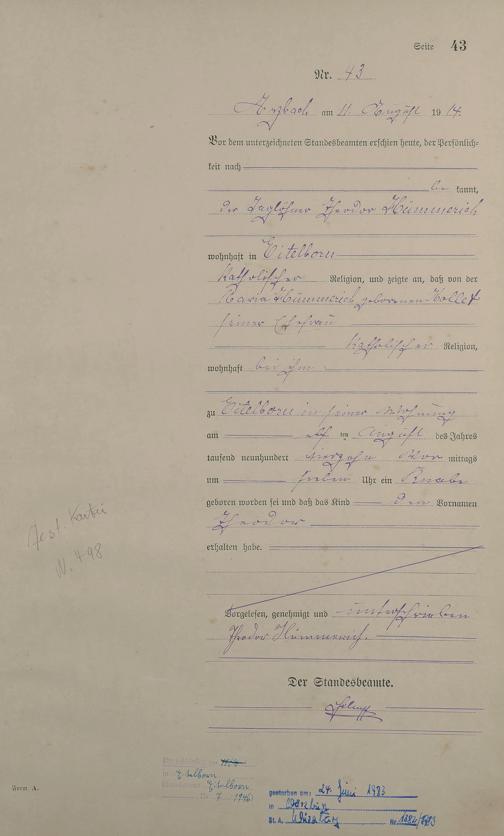 Seite 43
Nr. 43
Arzbach am 11 August 1914.
Vor dem unterzeichneten Standesbeamten erschien heute, der Persönlich-
keit nach
be kannt,
der Taglöhner Theodor Hümmerich
wohnhaft in Eitelborn
katholischer Religion, und zeigte an, daß von der
Maria Hümmerich geborenen Kollet
seiner Ehefrau
katholischer Religion,
wohnhaft bei ihm
zu Eitelborn in seiner Wohnung
am elf ten August des Jahres
tausend neunhundert vierzehn Vor mittags
um sieben Uhr ein Knabe
geboren worden sei und daß das Kind den Vornamen
Theodor
erhalten habe.
Vorgelesen, genehmigt und unterschrieben
Theodor Hümmerich.
Der Standesbeamte.
N. 498
Eitelborn
Eitelborn
Form A.
gestorben am: 24. Juni 1983
in Würzburg
St. A. Würzburg Nr.